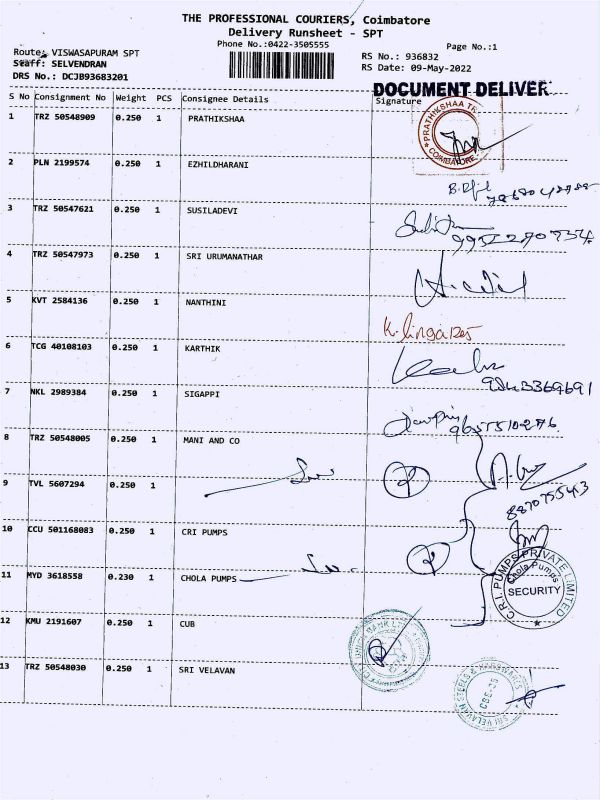 THE PROFESSIONAL COURIERS, Coimbatore
Delivery Runsheet - SPT
Phone No.:0422-3505555
Page No.:1
Route: VISWASAPURAM SPT
RS No.: 936832
Staff: SELVENDRAN
RS Date: 09-May-2022
DRS No.: DCJB93683201
DOCUMENT DELIVER
S No Consignment No Weight PCS Consignee Details Signature
1 TRZ 50548909 0.250 1 PRATHIKSHAA
PRATHIKSHAA TR
COIMBATORE
2 PLN 2199574 0.250 1 EZHILDHARANI
3 TRZ 50547621 0.250 1 SUSILADEVI
4 TRZ 50547973 0.250 1 SRI URUMANATHAR
5 KVT 2584136 0.250 1 NANTHINI
K. linga
6 TCG 40108103 0.250 1 KARTHIK
9843369691
7 NKL 2989384 0.250 1 SIGAPPI
8 TRZ 50548005 0.250 1 MANI AND CO
9 TVL 5607294 0.250 1
10 CCU 501168083 0.250 1 CRI PUMPS
11 MYD 3618558 0.230 1 CHOLA PUMPS
C.R.I. PUMPS PRIVATE LIMITED
Chola Pumps
SECURITY
12 KMU 2191607 0.250 1 CUB
13 TRZ 50548030 0.250 1 SRI VELAVAN
SRI VELAVAN STEELS & HARDWARES